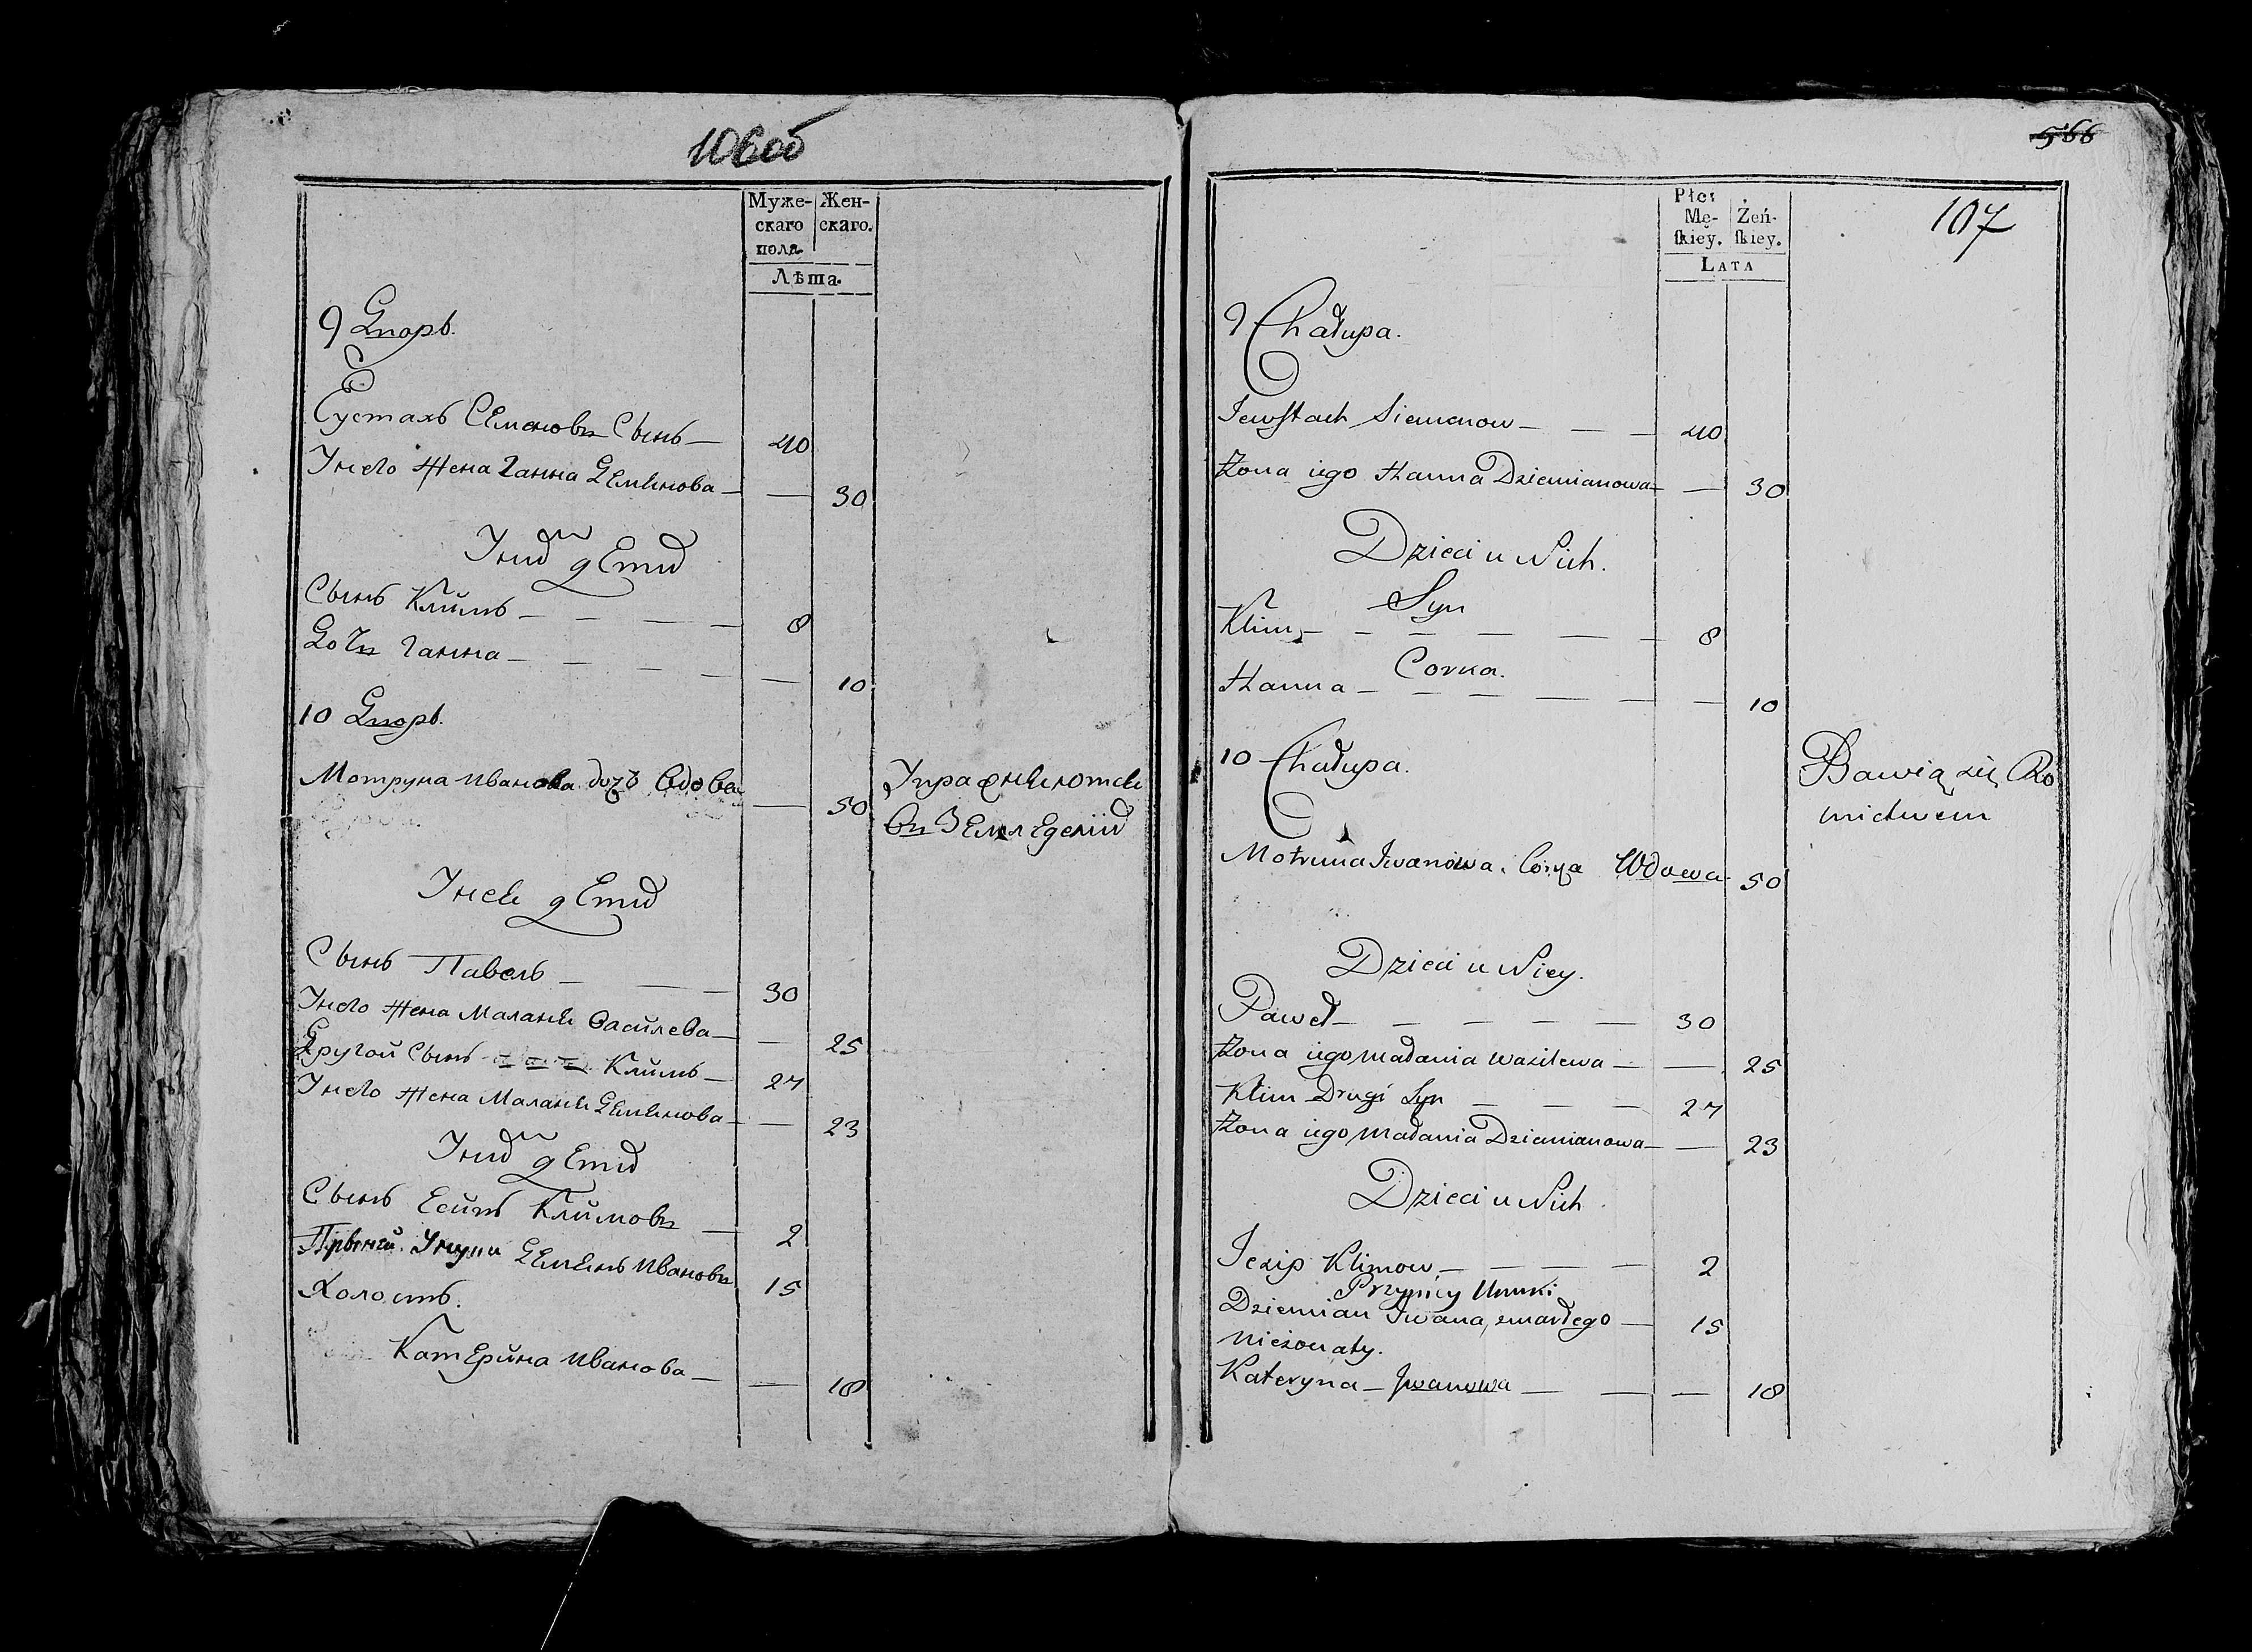 106об
Муже-
скаго
пола.
Жен-
скаго.
Лѣта.
9 Дворъ.
Еустахъ Семеновъ Сынъ — 40
У нево жена Ганна Деминова — — 30
У нид дети
Сынъ Клим — — — 8
Дочъ Ганна — — — 10
10 Дворъ.
Мотруна Иванова дочъ вдова — 50
Упражняютси
въ земледелии
У неи дети
Сынъ Павелъ — — 30
У нево жена Малания Василева — — 25
Другой Сынъ — — — Климъ — 27
У нево жена Малания Деминова — — 23
У них дети
Сынъ Есипъ Климовъ — 2
Внуки Деминъ Ивановъ 15
Холостъ.
Катерина Иванова — — 18
566
107
Płci
Mę-
skiey.
Żeń-
skiey.
LATA
9 Chałupa.
Jewstach Siemenow — — — 40
Żona iego Hanna Dziemianowa — — 30
Dzieci u Nich.
Syn
Klim — — — — — 8
Corka.
Hanna — — — — — 10
10 Chałupa.
Bawią się Ro
lnictwem
Motruna Iwanowa Corka Wdowa 50
Dzieci u Niey.
Paweł — — — — — 30
Żona iego Małania Wasilewa — — 25
Klim Drugi Syn — — — 27
Żona iego Małania Dziemianowa — — 23
Dzieci u Nich
Iezip Klimow — — — — 2
Przy niey Wnuki
Dziemian Iwana, zmarłego — 15
Nieżonaty.
Kateryna — Iwanowa — — — 18